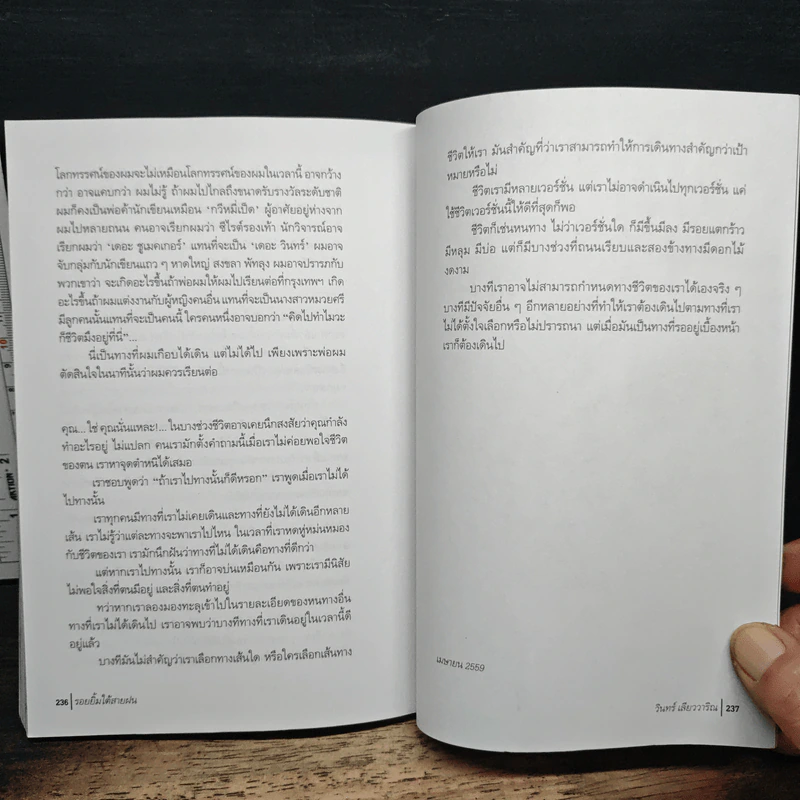 โลกทรรศน์ของผมจะไม่เหมือนโลกทรรศน์ของผมในเวลานี้ อาจกว้าง
กว่า อาจแคบกว่า ผมไม่รู้ ถ้าผมไปไกลถึงขนาดรับรางวัลระดับชาติ
ผมก็คงเป็นพ่อค้านักเขียนเหมือน ‘กวีหมี่เป็ด’ ผู้อาศัยอยู่ห่างจาก
ผมไปหลายถนน คนอาจเรียกผมว่า ซีไรต์รองเท้า นักวิจารณ์อาจ
เรียกผมว่า ‘เดอะ ชูเมคเกอร์’ แทนที่จะเป็น ‘เดอะ วินทร์’ ผมอาจ
จับกลุ่มกับนักเขียนแถว ๆ หาดใหญ่ สงขลา พัทลุง ผมอาจปรารภกับ
พวกเขาว่า จะเกิดอะไรขึ้นถ้าพ่อผมให้ผมไปเรียนต่อที่กรุงเทพฯ เกิด
อะไรขึ้นถ้าผมแต่งงานกับผู้หญิงคนอื่น แทนที่จะเป็นนางสาวหมวยศรี
มีลูกคนนั้นแทนที่จะเป็นคนนี้ ใครคนหนึ่งอาจบอกว่า “คิดไปทำไมวะ
ก็ชีวิตมึงอยู่ที่นี่”...
นี่เป็นทางที่ผมเกือบได้เดิน แต่ไม่ได้ไป เพียงเพราะพ่อผม
ตัดสินใจในนาทีนั้นว่าผมควรเรียนต่อ
คุณ... ใช่ คุณนั่นแหละ!... ในบางช่วงชีวิตอาจเคยนึกสงสัยว่าคุณกำลัง
ทำอะไรอยู่ ไม่แปลก คนเรามักตั้งคำถามนี้เมื่อเราไม่ค่อยพอใจชีวิต
ของตน เราหาจุดตำหนิได้เสมอ
เราชอบพูดว่า “ถ้าเราไปทางนั้นก็ดีหรอก” เราพูดเมื่อเราไม่ได้
ไปทางนั้น
เราทุกคนมีทางที่เราไม่เคยเดินและทางที่ยังไม่ได้เดินอีกหลาย
เส้น เราไม่รู้ว่าแต่ละทางจะพาเราไปไหน ในเวลาที่เราหดหู่หม่นหมอง
กับชีวิตของเรา เรามักนึกฝันว่าทางที่ไม่ได้เดินคือทางที่ดีกว่า
แต่หากเราไปทางนั้น เราก็อาจบ่นเหมือนกัน เพราะเรามีนิสัย
ไม่พอใจสิ่งที่ตนมีอยู่ และสิ่งที่ตนทำอยู่
ทว่าหากเราลองมองทะลุเข้าไปในรายละเอียดของหนทางอื่น
ทางที่เราไม่ได้เดินไป เราอาจพบว่าบางทีทางที่เราเดินอยู่ในเวลานี้ดี
อยู่แล้ว
บางทีมันไม่สำคัญว่าเราเลือกทางเส้นใด หรือใครเลือกเส้นทาง
236 รอยยิ้มใต้สายฝน
ชีวิตให้เรา มันสำคัญที่ว่าเราสามารถทำให้การเดินทางสำคัญกว่าเป้า
หมายหรือไม่
ชีวิตเรามีหลายเวอร์ชั่น แต่เราไม่อาจดำเนินไปทุกเวอร์ชั่น แค่
ใช้ชีวิตเวอร์ชั่นนี้ให้ดีที่สุดก็พอ
ชีวิตก็เช่นหนทาง ไม่ว่าเวอร์ชั่นใด ก็มีขึ้นมีลง มีรอยแตกร้าว
มีหลุม มีบ่อ แต่ก็มีบางช่วงที่ถนนเรียบและสองข้างทางมีดอกไม้
งดงาม
บางทีเราอาจไม่สามารถกำหนดทางชีวิตของเราได้เองจริง ๆ
บางทีมีปัจจัยอื่น ๆ อีกหลายอย่างที่ทำให้เราต้องเดินไปตามทางที่เรา
ไม่ได้ตั้งใจเลือกหรือไม่ปรารถนา แต่เมื่อมันเป็นทางที่รออยู่เบื้องหน้า
เราก็ต้องเดินไป
เมษายน 2559
วินทร์ เลียววาริณ 237